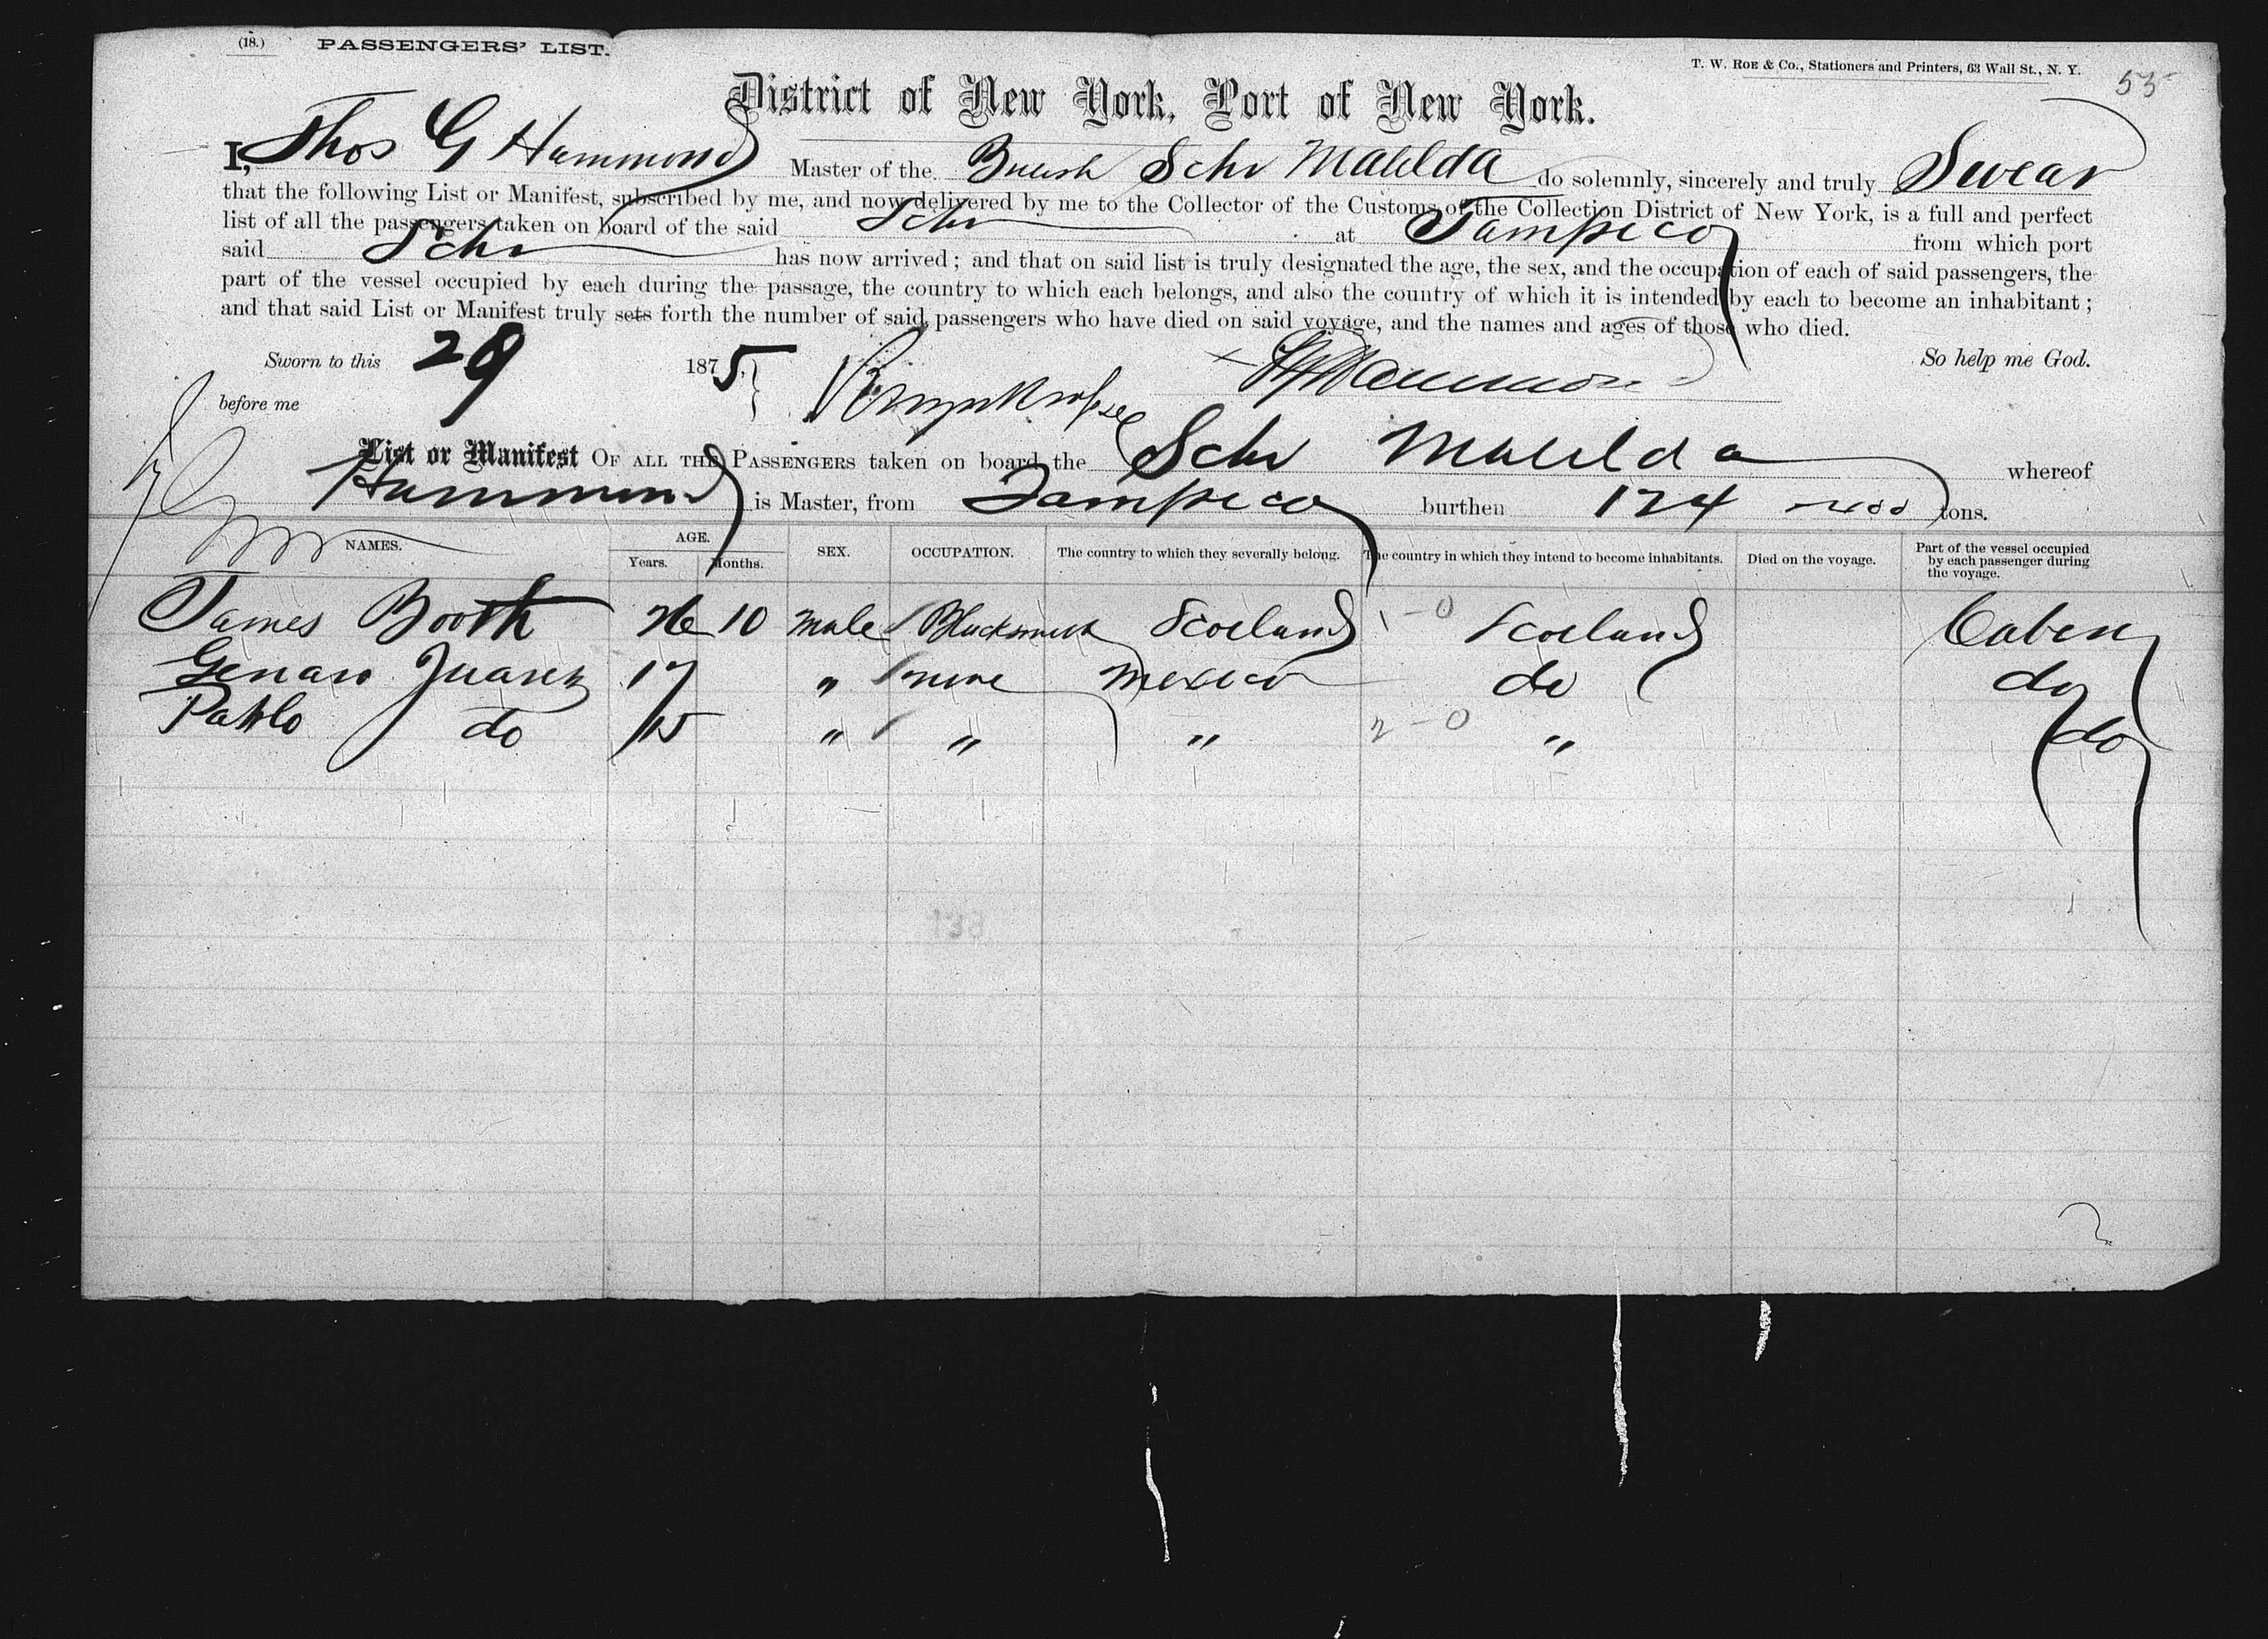 (18.) PASSENGERS' LIST.
T. W. ROE & CO., Stationers and Printers, 63 Wall St., N. Y. 55
District of New York, Port of New York.
I, Thos G Hammond Master of the British Schr Matilda do solemnly, sincerely and truly Swear
that the following List or Manifest, subscribed by me, and now delivered by me to the Collector of the Customs of the Collection District of New York, is a full and perfect
list of all the passengers taken on board of the said Schr at Tampico from which port
said Schr has now arrived; and that on said list is truly designated the age, the sex, and the occupation of each of said passengers, the
part of the vessel occupied by each during the passage, the country to which each belongs, and also the country of which it is intended by each to become an inhabitant;
and that said List or Manifest truly sets forth the number of said passengers who have died on said voyage, and the names and ages of those who died.
Sworn to this 29 1875, Hammond So help me God.
before me
List or Manifest OF ALL THE PASSENGERS taken on board the Schr Matilda whereof
Hammond is Master, from Tampico burthen 124 tons.
NAMES. AGE. Years. Months. SEX. OCCUPATION. The country to which they severally belong. The country in which they intend to become inhabitants. Died on the voyage. Part of the vessel occupied by each passenger during the voyage.
James Booth 26 10 Male Blacksmith Scotland 1-0 Scotland Caben
Genaro Juarez 17 " none Mexico do do
Pablo do 15 " " " 2-0 " do